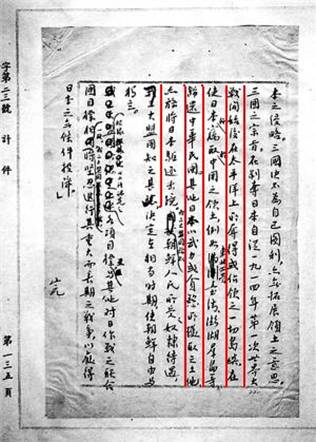 本之侵略。三國決不為自己圖利,亦無拓展領土之意思。
三國之宗旨,在剝奪日本自從一九一四年第一次世界大
戰開始後在太平洋上所奪得或佔領之一切島嶼,在
使日本竊取中國之領土,例如台灣,澎湖羣島等,
歸還中華民國。其他日本以武力或貪慾所攫取之土地,
亦務將日本驅逐出境。朝鮮人民所受奴隸待遇,
三大盟國知之甚 決定在相當時期,使朝鮮自由與
獨立。
各項目標與其他對日作戰之聯合
國目標相 堅忍進行其重大而長期之戰爭,以獲得
日本之無條件投降。」
完
字第二三號 計 件 第一三五頁